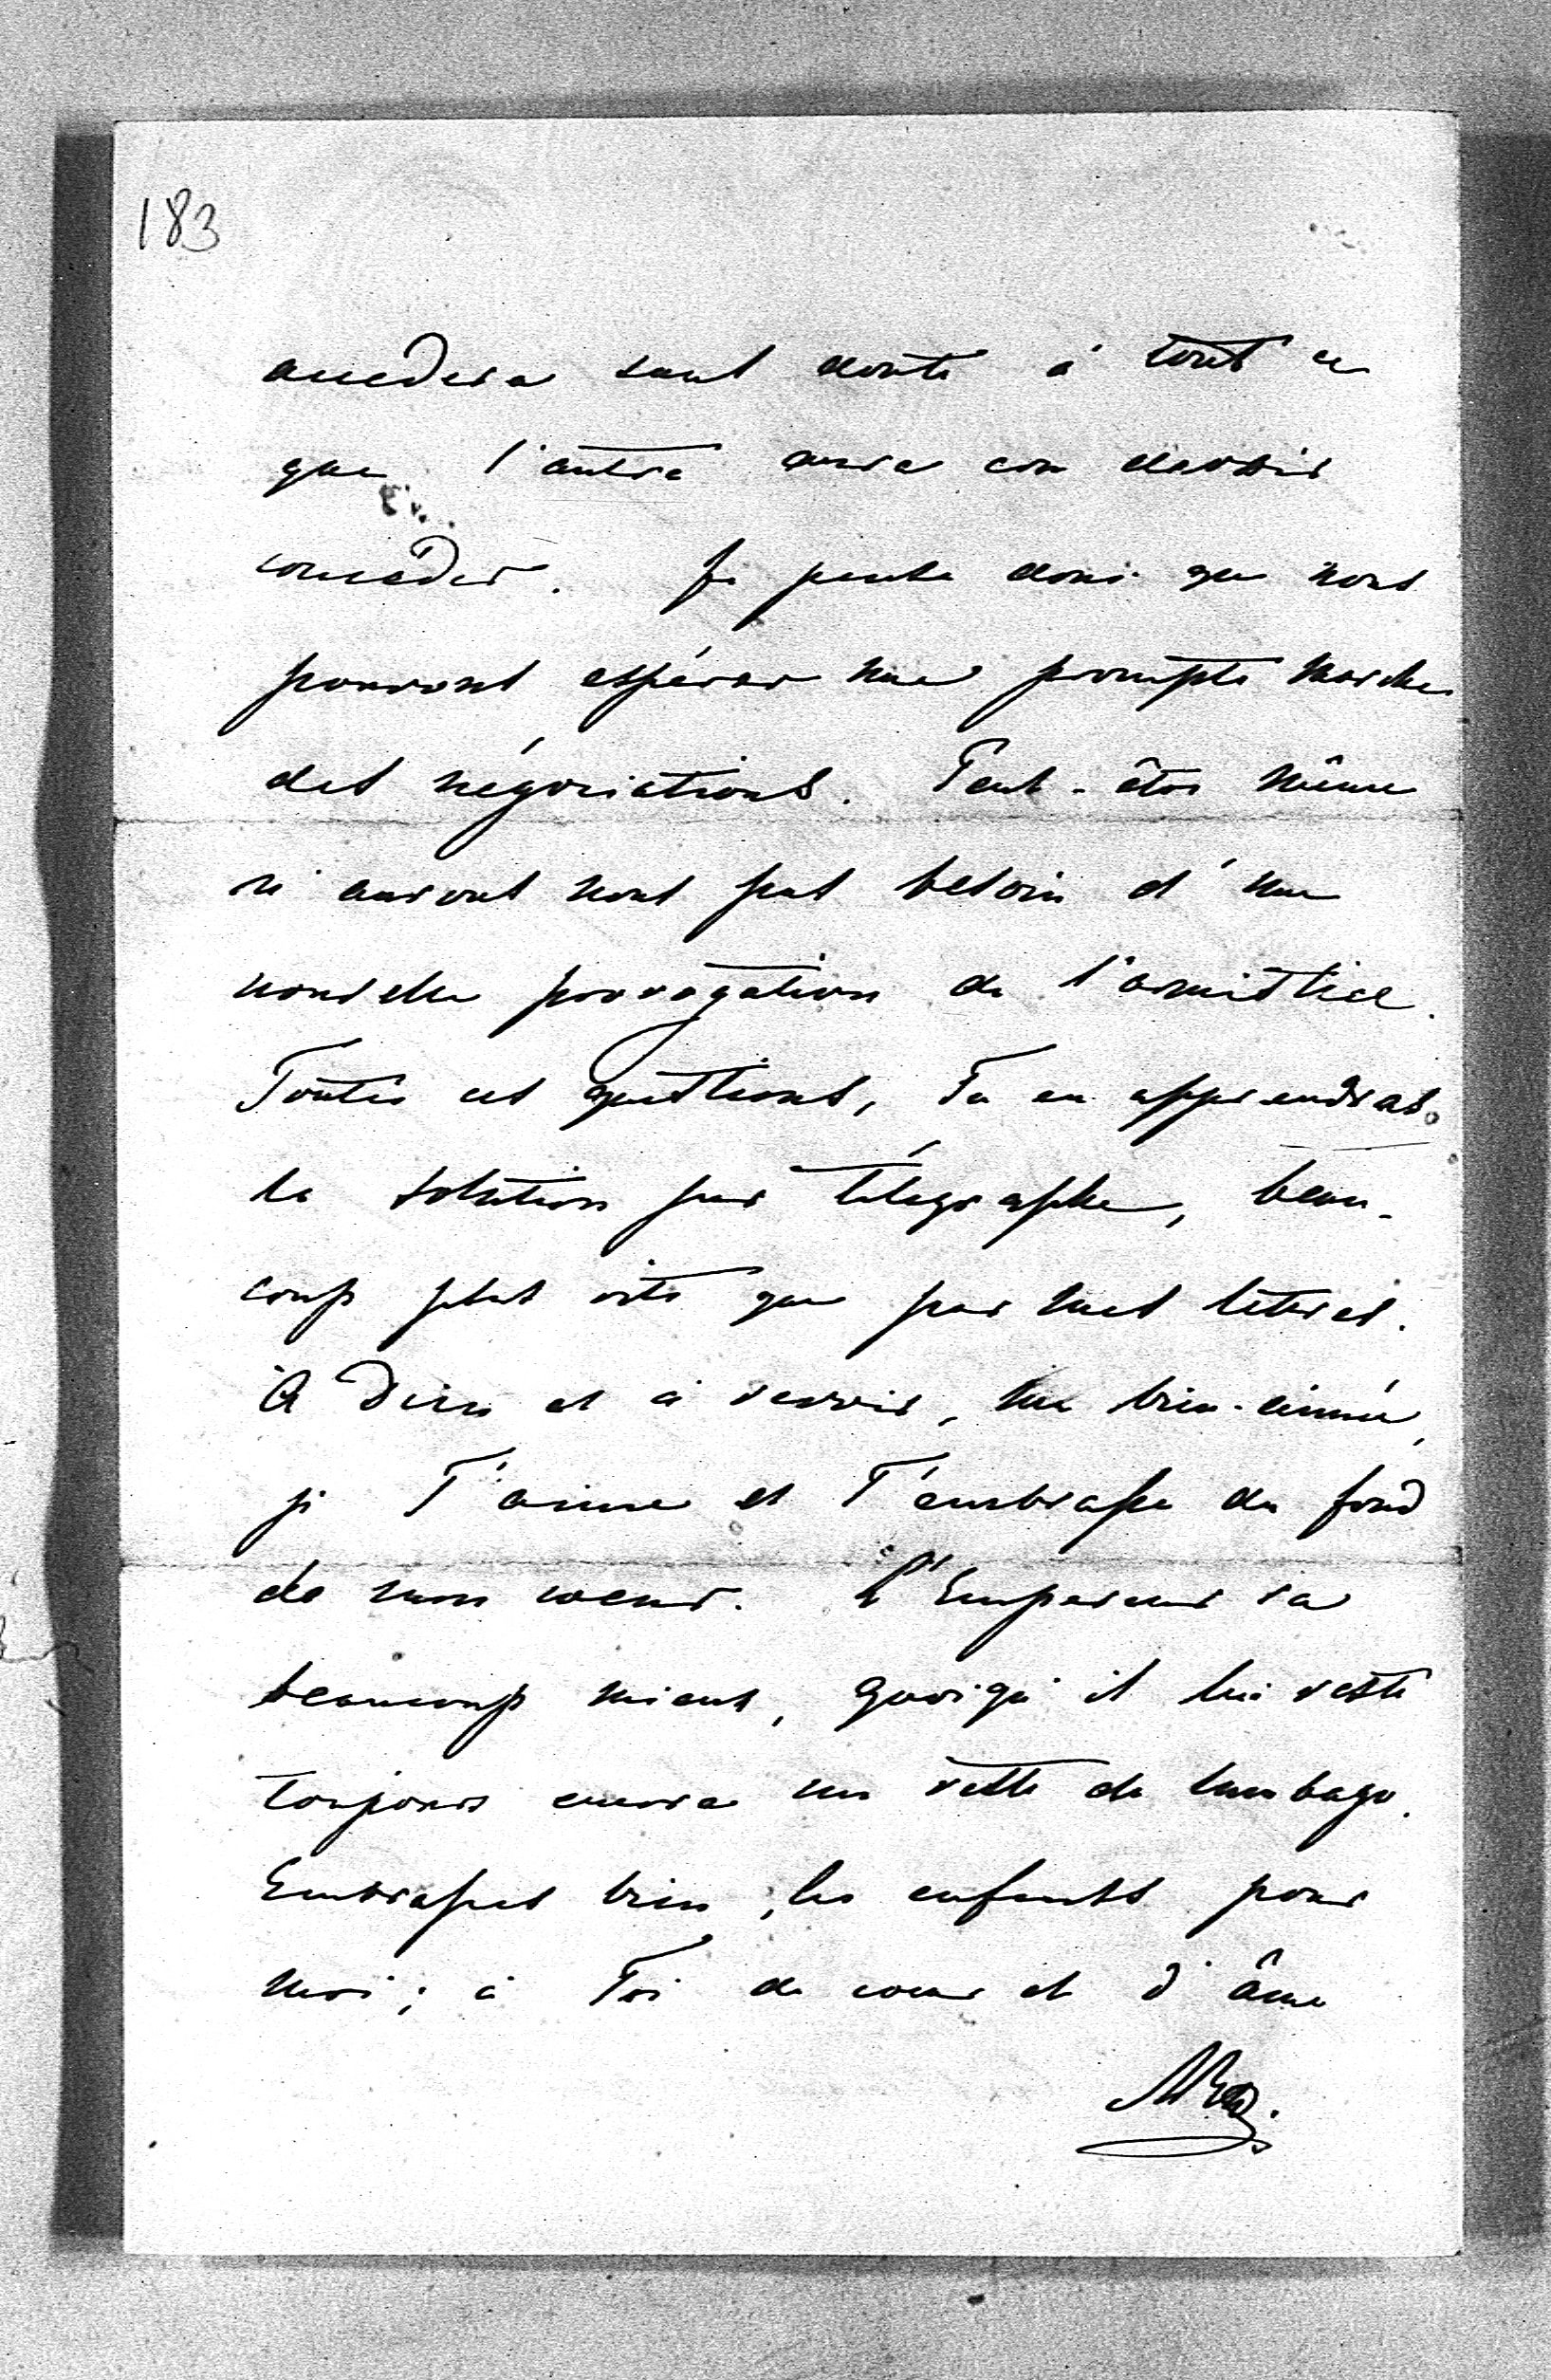 183
accedera sans doute à tout ce
que l'autre aura cru devoir
concéder. Je pense donc que nous
pouvons espérer une prompte marche
des négociations. Peut-être même
n'aurons nous pas besoin d'une
nouvelle prorogation de l'armistice.
Toutes ces questions, Tu en apprendras
la solution par télégraphe, beau-
coup plus vite que par mes lettres.
A Dieu et à revoir, ma bien-aimée,
je T'aime et T'embrasse du fond
de mon coeur. L'Empereur va
beaucoup mieux, quoiqu'il lui reste
toujours encore un reste de lumbago.
Embrasses bien les enfants pour
moi; à Toi de coeur et d'âme